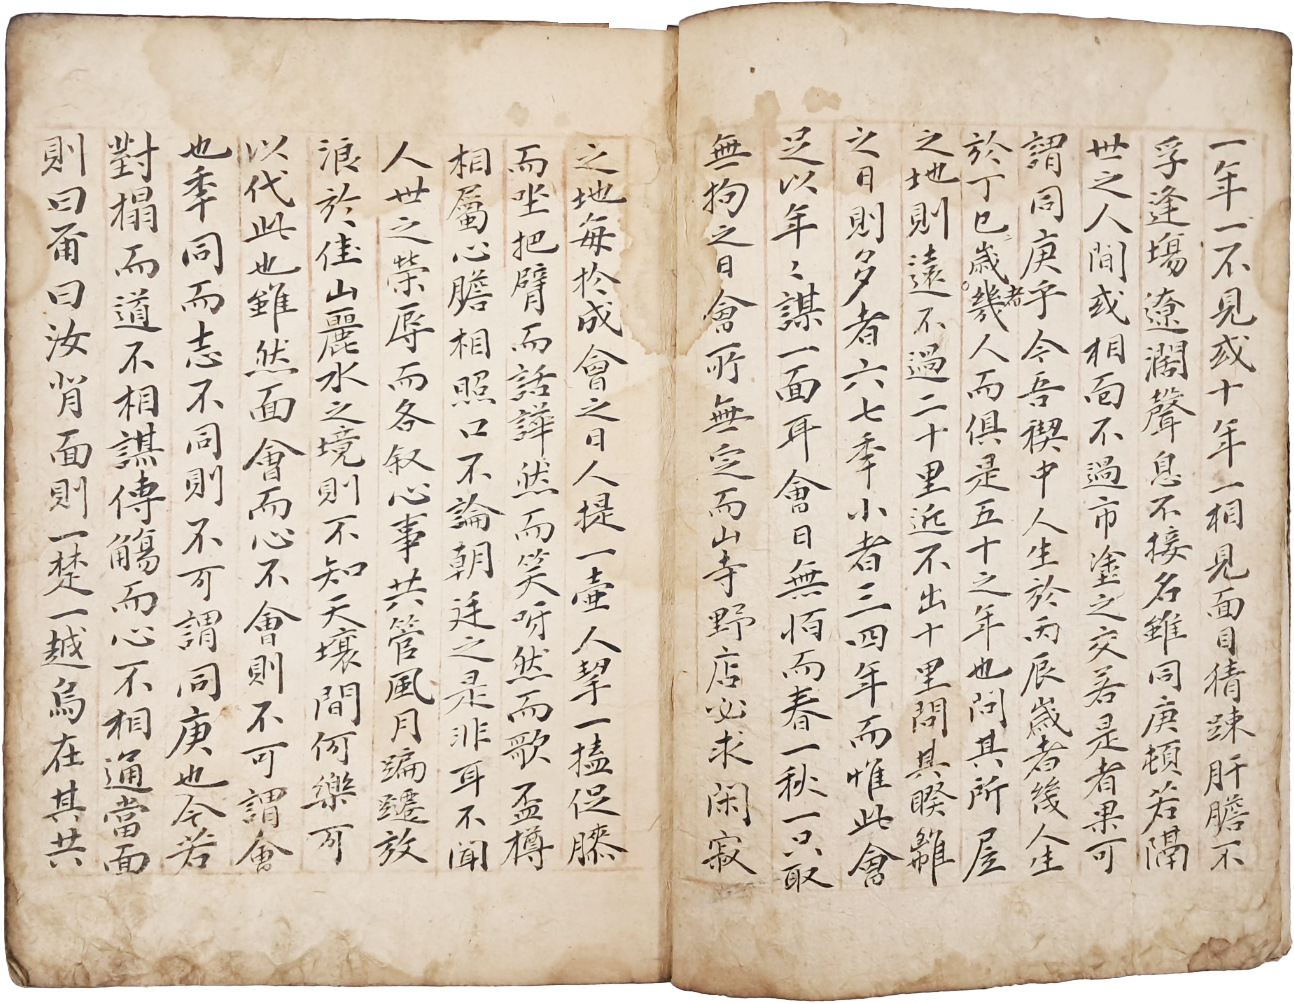 一年一不見或十年一相見面目猜踈肝膽不
孚逢場遼濶聲息不接名雖同庚頓若隔
世之人間或相面不過市塗之交若是者果可
謂同庚乎今吾禊中人生於丙辰歲者幾人生
於丁巳歲者幾人而俱是五十之年也問其所居
之地則遠不過二十里近不出十里問其睽離
之日則多者六七季小者三四年而惟此會
足以年〻謀一面耳會日無怕而春一秋一只取
無拘之日會所無定而山寺野店必求閑寂
之地每扵成會之日人提一壷人挈一榼促膝
而坐把臂而話譁然而笑呀然而歌盃樽
相屬心膽相照口不論朝廷之是非耳不聞
人世之榮辱而各叙心事共管風月蹁躚放
浪於佳山麗水之境則不知天壤間何樂可
以代此也雖然面會而心不會則不可謂會
也季同而志不同則不可謂同庚也今若
對榻而道不相謀傳觴而心不相通當面
則曰甭曰汝背面則一楚一越烏在其共